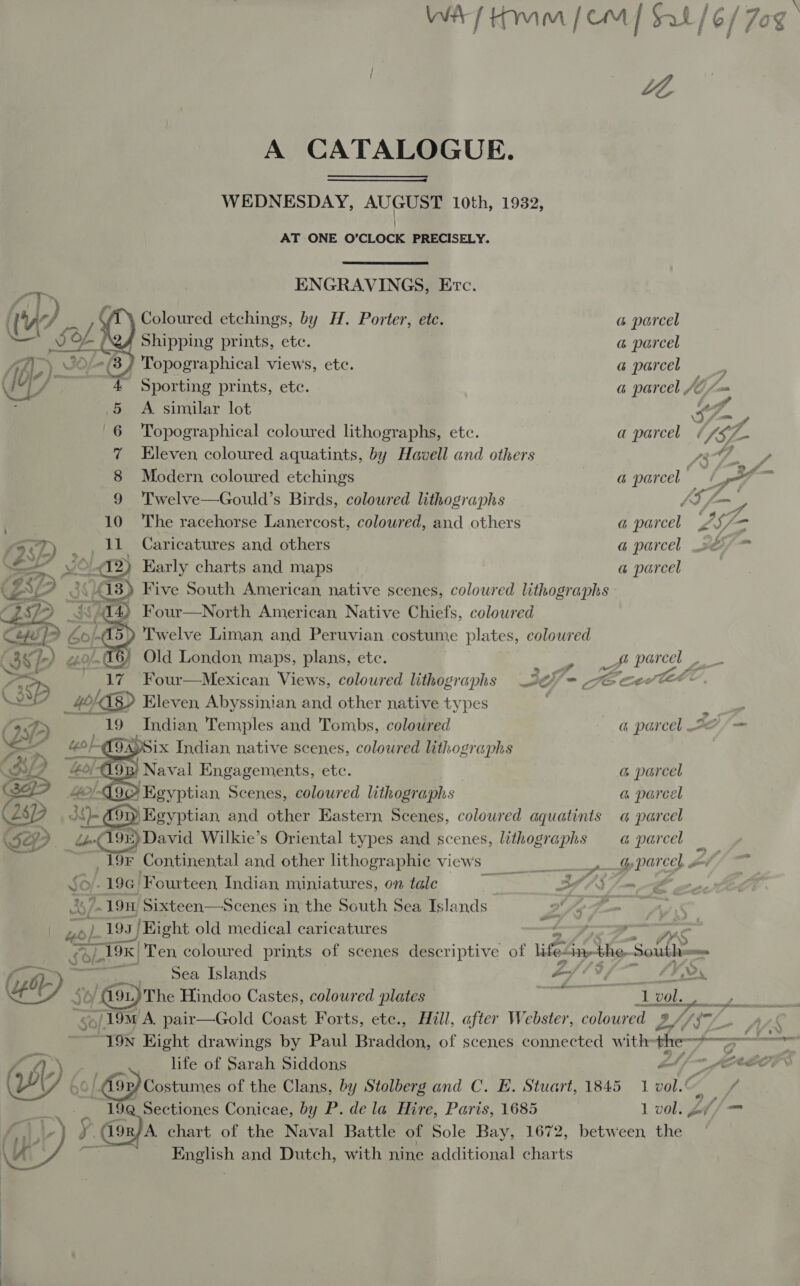 WA/HMM/CM/Sal/6/708
A CATALOGUE.
WEDNESDAY, AUGUST 10th, 1932,
AT ONE O'CLOCK PRECISELY.
ENGRAVINGS, Etc.
1 Coloured etchings, by H. Porter, etc. a parcel
2 Shipping prints, etc. a parcel
30/- 3 Topographical views, etc. a parcel
4 Sporting prints, etc. a parcel
5 A similar lot
6 Topographical coloured lithographs, etc. a parcel
7 Eleven coloured aquatints, by Havell and others
8 Modern coloured etchings a parcel
9 Twelve—Gould's Birds, coloured lithographs
10 The racehorse Lanercost, coloured, and others a parcel
11 Caricatures and others a parcel
12) Early charts and maps a parcel
13) Five South American native scenes, coloured lithographs
14) Four—North American Native Chiefs, coloured
15) Twelve Liman and Peruvian costume plates, coloured
16) Old London maps, plans, etc. a parcel
17 Four—Mexican Views, coloured lithographs
40/- 18) Eleven Abyssinian and other native types
19 Indian Temples and Tombs, coloured a parcel
40/- 19A) Six Indian native scenes, coloured lithographs
40/- 19B) Naval Engagements, etc. a parcel
19C) Egyptian Scenes, coloured lithographs a parcel
19D) Egyptian and other Eastern Scenes, coloured aquatints a parcel
19E) David Wilkie's Oriental types and scenes, lithographs a parcel
19F Continental and other lithographic views a parcel
19G Fourteen Indian miniatures, on talc
19H Sixteen—Scenes in the South Sea Islands
19J Eight old medical caricatures
19K Ten coloured prints of scenes descriptive of life in the South
Sea Islands
19L) The Hindoo Castes, coloured plates 1 vol.
19M A pair—Gold Coast Forts, etc., Hill, after Webster, coloured
19N Eight drawings by Paul Braddon, of scenes connected with the
life of Sarah Siddons
19P) Costumes of the Clans, by Stolberg and C. E. Stuart, 1845 1 vol.
19Q Sectiones Conicae, by P. de la Hire, Paris, 1685 1 vol.
19R) A chart of the Naval Battle of Sole Bay, 1672, between the
English and Dutch, with nine additional charts